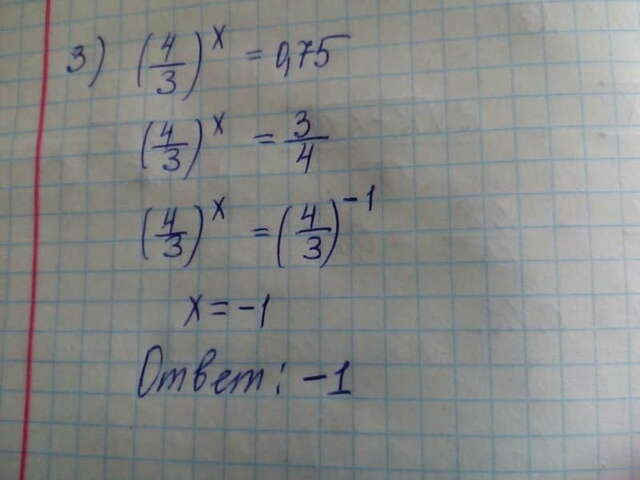 3) (4/3)^x = 0,75
(4/3)^x = 3/4
(4/3)^x = (4/3)^-1
x = -1
Ответ: -1